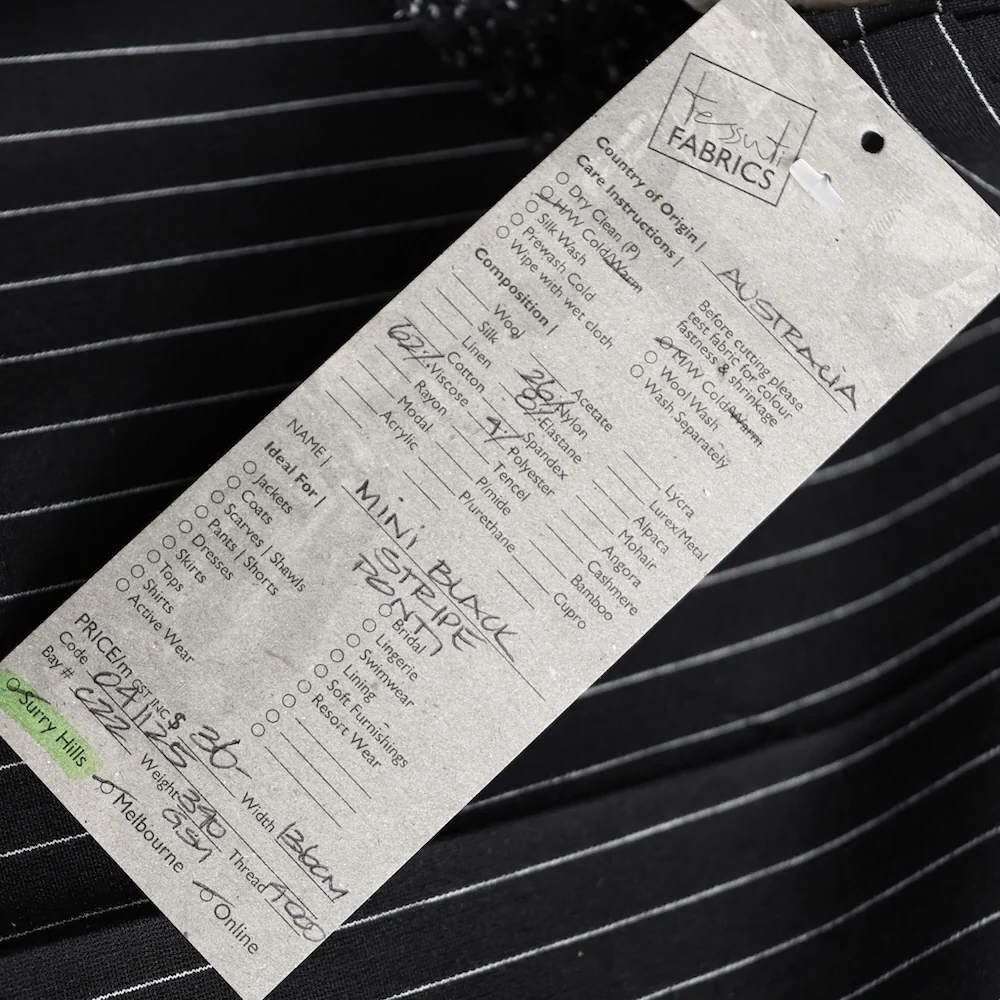 Tessuti
FABRICS
Country of Origin | AUSTRALIA
Care Instructions |
Dry Clean (P)
H/W Cold/Warm
Silk Wash
Prewash Cold
Wipe with wet cloth
Before cutting please
test fabric for colour
fastness & shrinkage
M/W Cold/Warm
Wool Wash
Wash Separately
Composition |
Wool
Silk
Linen
Cotton
62% Viscose
Rayon
Modal
Acrylic
Acetate
26% Nylon
8% Elastane
Spandex
4% Polyester
Tencel
P/mide
P/urethane
Lycra
Lurex/Metal
Alpaca
Mohair
Angora
Cashmere
Bamboo
Cupro
NAME | MINI BLACK
STRIPE
PONTI
Ideal For |
Jackets
Coats
Scarves | Shawls
Pants | Shorts
Dresses
Skirts
Tops
Shirts
Active Wear
Bridal
Lingerie
Swimwear
Lining
Soft Furnishings
Resort Wear
PRICE/m GST INC $ 36-
Width 136CM
Code 04/125
Weight 390
GSM
Thread
Bay # C222
Surry Hills
Melbourne
Online